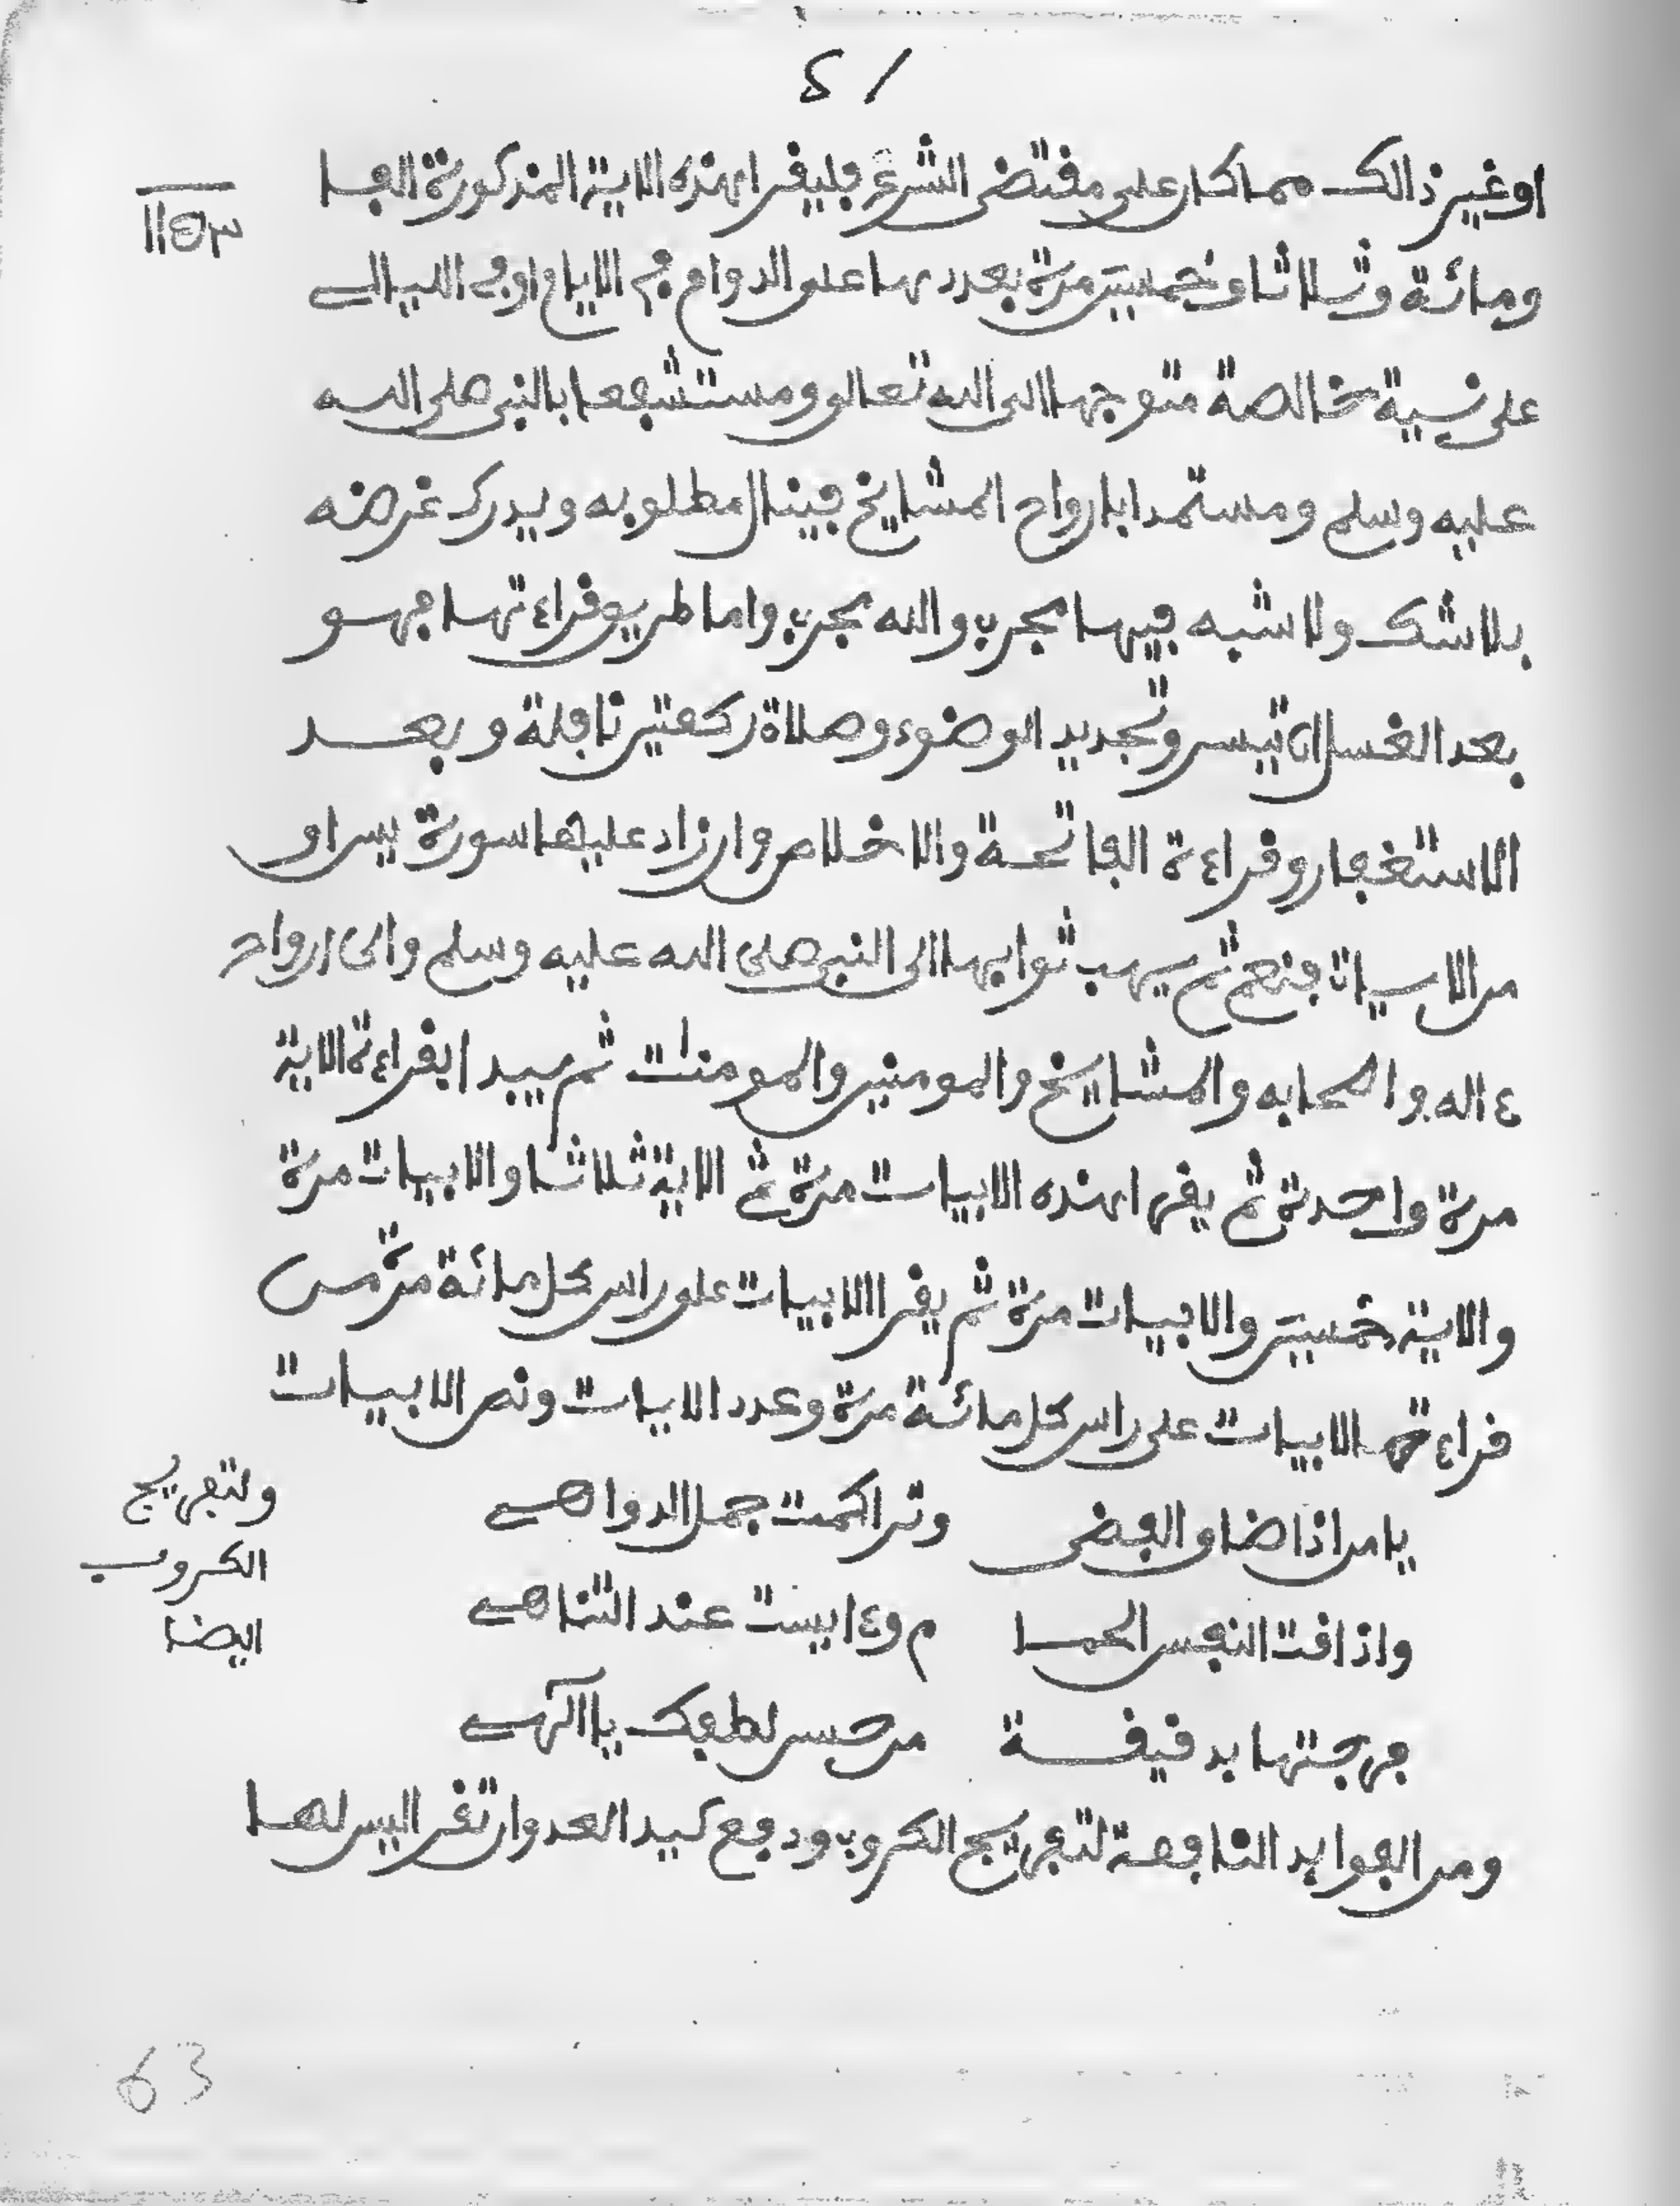 ٤١
او غير ذالك مما كان على مقتضى الشرع فليقرا هذه الاية المذكورة الفا
١١٥٣
ومائة وثلاثا وخمسين مرة بعددها على الدوام في الايام او في الليالي
على نية خالصة متوجها الى الله تعالى ومستشفعا بالنبي صلى الله
عليه وسلم ومستمدا بارواح المشايخ فينال مطلوبه ويدرك غرضه
بلا شك ولا شبه فيها مجرب والله مجرب واما طريق قراءتها فهو
بعد الغسل ان تيسر وتجديد الوضوء وصلاة ركعتين نافلة وبعد
الاستغفار وقراءة الفاتحة والاخلاص وان زاد عليها سورة يس او
من الايات فنعم ثم يهب ثوابها الى النبي صلى الله عليه وسلم والى ارواح
ءاله واصحابه والمشايخ والمومنين والمومنات ثم يبدا بقراءة الاية
مرة واحدة ثم يقرا هذه الابيات مرة ثم الاية ثلاثا والابيات مرة
والاية خمسين والابيات مرة ثم يقرا الابيات على راس كل مائة مرة من
قراءة الابيات على راس كل مائة مرة وعدد الايات ونص الابيات
يا من اذا ضاق الفضى وتراكمت جمل الدواهي
ولتفريج
الكروب
ايضا
واذا فت النفس الحما م وءايست عند التناهي
فرجتها بدقيقة من حسن لطفك يا الهي
ومن الفوايد النافعة لتفريج الكروب ودفع كيد العدو ان تقرا ليس لها
63